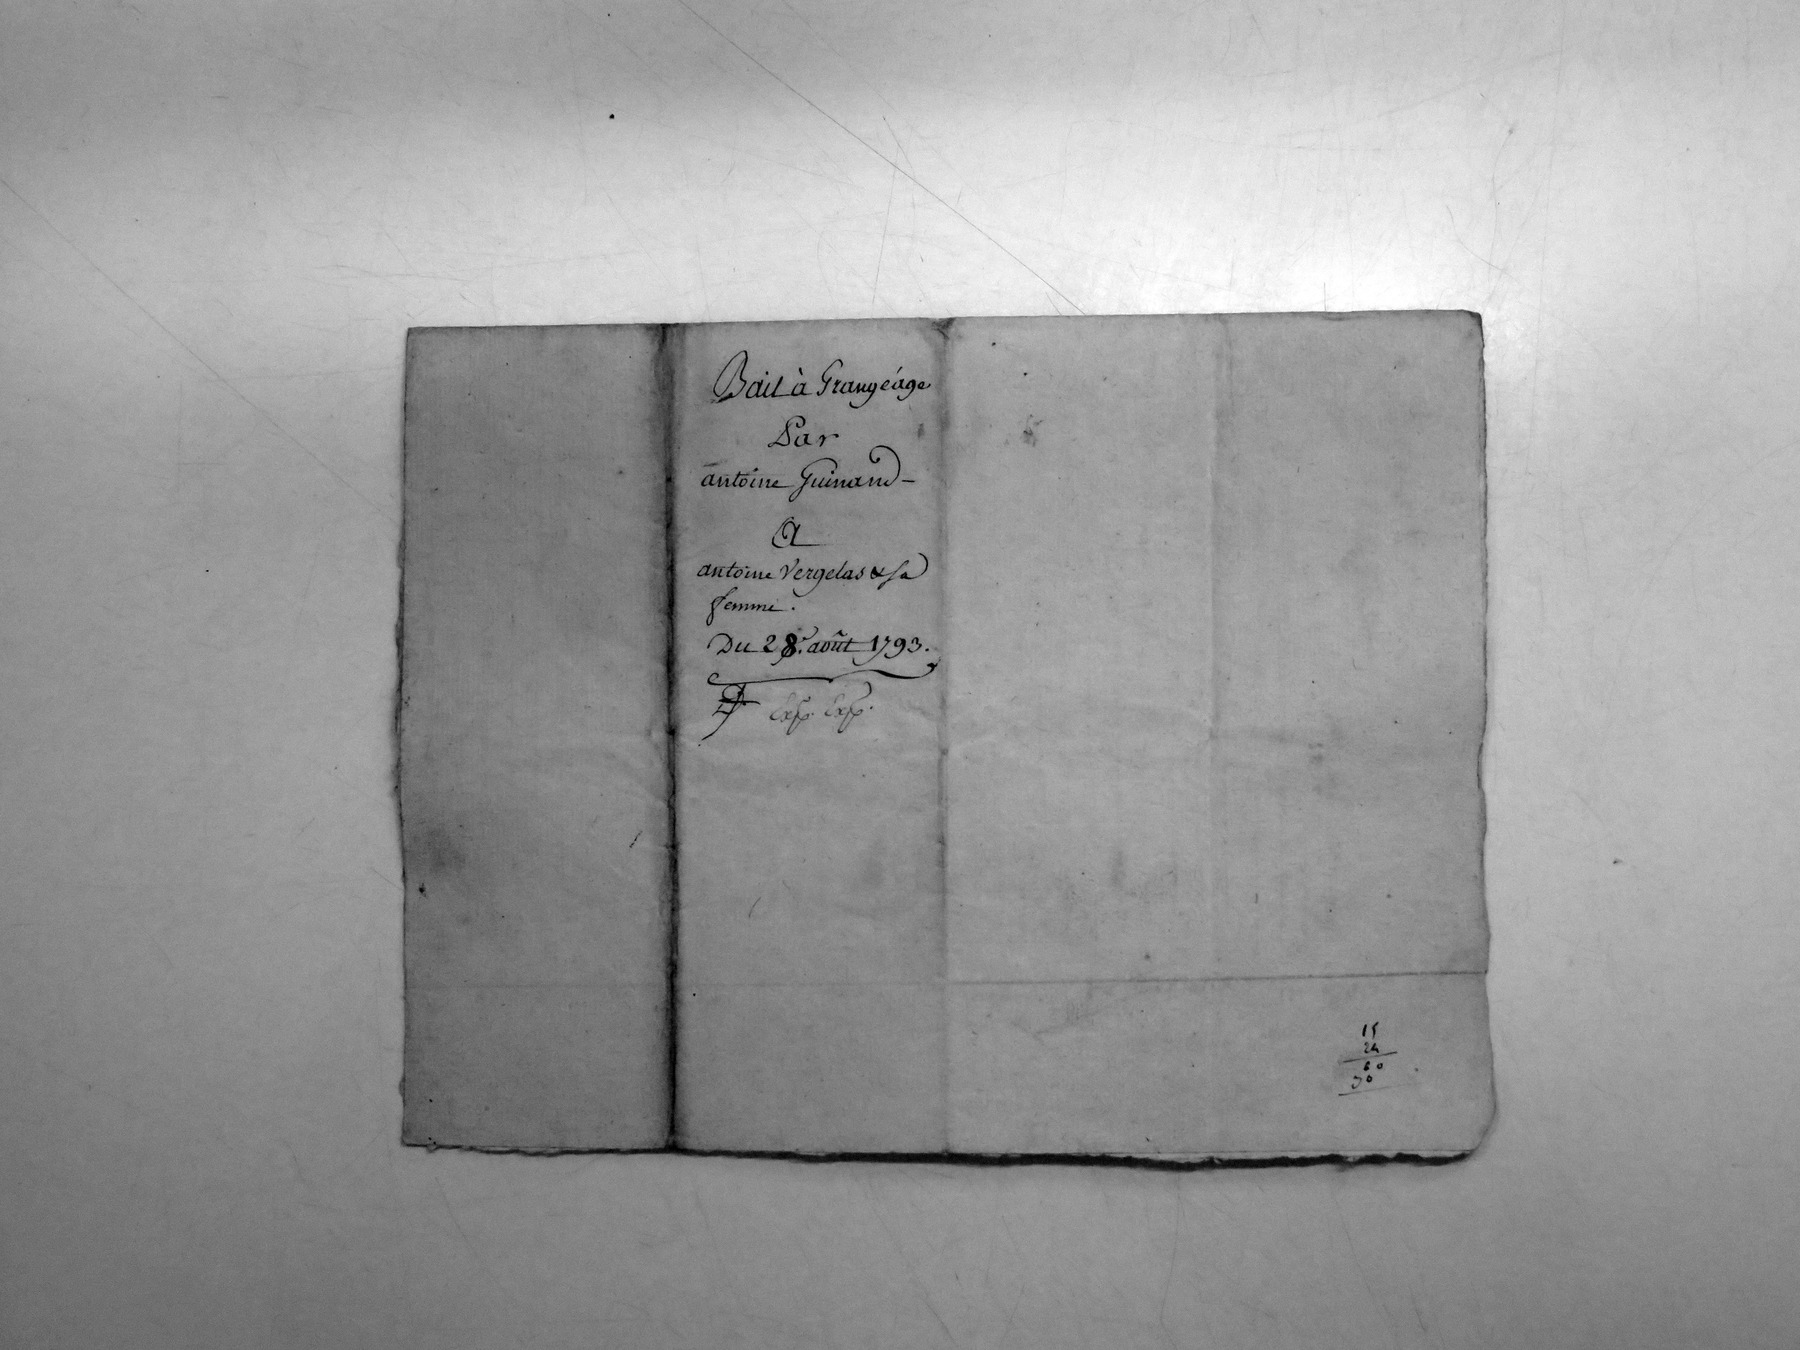 Bail à Grangéage
Par
antoine Guinand
A
antoine Vergelas & sa
femme.
Du 28 août 1793.
Exp. Exp.
15
24
60
30